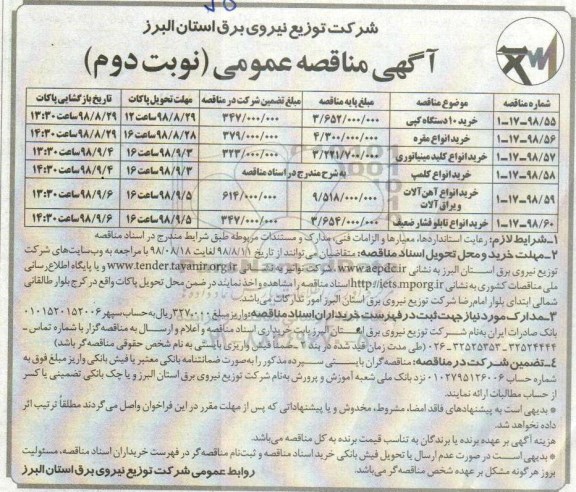 شرکت توزیع نیروی برق استان البرز
آگهی مناقصه عمومی (نوبت دوم)
شماره مناقصه موضوع مناقصه مبلغ پایه مناقصه مبلغ تضمین شرکت در مناقصه مهلت تحویل پاکات تاریخ بازگشایی پاکات
۱-۱۷-۹۸/۵۵ خرید ۱۰ دستگاه کپی ۳/۶۵۲/۰۰۰/۰۰۰ ۳۴۷/۰۰۰/۰۰۰ ۹۸/۸/۲۹ ساعت ۱۲ ۹۸/۸/۲۹ ساعت ۱۳:۳۰
۱-۱۷-۹۸/۵۶ خرید انواع مقره ۴/۳۰۰/۰۰۰/۰۰۰ ۳۷۹/۰۰۰/۰۰۰ ۹۸/۸/۲۸ ساعت ۱۶ ۹۸/۸/۲۹ ساعت ۱۴:۳۰
۱-۱۷-۹۸/۵۷ خرید انواع کلید مینیاتوری ۳/۲۲۱/۷۰۰/۰۰۰ ۳۲۳/۰۰۰/۰۰۰ ۹۸/۹/۳ ساعت ۱۶ ۹۸/۹/۴ ساعت ۱۳:۳۰
۱-۱۷-۹۸/۵۸ خرید انواع کلمپ به شرح مندرج در اسناد مناقصه ۹۸/۹/۳ ساعت ۱۶ ۹۸/۹/۴ ساعت ۱۴:۳۰
۱-۱۷-۹۸/۵۹ خرید انواع آهن آلات و یراق آلات ۹/۵۱۸/۰۰۰/۰۰۰ ۶۱۴/۰۰۰/۰۰۰ ۹۸/۹/۵ ساعت ۱۶ ۹۸/۹/۶ ساعت ۱۳:۳۰
۱-۱۷-۹۸/۶۰ خرید انواع تابلو فشار ضعیف ۳/۶۵۴/۰۰۰/۰۰۰ ۳۴۷/۰۰۰/۰۰۰ ۹۸/۹/۵ ساعت ۱۶ ۹۸/۹/۶ ساعت ۱۴:۳۰
۱-شرایط لازم: رعایت استانداردها، معیارها و الزامات فنی، مدارک و مستندات مربوطه طبق شرایط مندرج در اسناد مناقصه
۲-مهلت خرید و محل تحویل اسناد مناقصه: متقاضیان می توانند از تاریخ ۹۸/۸/۱۱ لغایت ۹۸/۰۸/۱۸ با مراجعه به وب‌سایت‌های شرکت
توزیع نیروی برق استان البرز به نشانی www.aepdc.ir و شرکت توانیر به نشانی www.tender.tavanir.org.ir و یا پایگاه اطلاع رسانی
ملی مناقصات کشوری به نشانی http://iets.mporg.ir اسناد مناقصه را مشاهده و اخذ نمایند در ضمن محل تحویل پاکات واقع در کرج بلوار طالقانی
شمالی ابتدای بلوار امام رضا شرکت توزیع نیروی برق استان البرز امور تدارکات می باشد.
۳-مدارک مورد نیاز جهت ثبت در فهرست خریداران اسناد مناقصه: واریز مبلغ ۳۲۷۰۰۰ ریال به حساب سپهر ۰۱۰۱۵۲۰۱۵۲۰۰۶
بانک صادرات ایران به نام شرکت توزیع نیروی برق استان البرز بابت خریداری اسناد مناقصه و اعلام و ارسال به مناقصه گزار با شماره تماس
۳۲۵۲۴۴۴۴-۳۲۵۲۵۳۵۳-۰۲۶ (طی مدت زمان قید شده در بند ۲) واریزی بایستی به نام شخص حقوقی مناقصه گر باشد)
۴-تضمین شرکت در مناقصه: مناقصه گران بایستی سپرده مذکور را به‌صورت ضمانتنامه بانکی معتبر یا فیش بانکی واریز مبلغ فوق به
شماره حساب ۰۱۰۲۷۹۵۱۲۶۰۰۶ نزد بانک ملی شعبه آموزش و پرورش به نام شرکت توزیع نیروی برق استان البرز و یا چک بانکی تضمینی یا کسر
از حساب مطالبات ارائه نمایند.
* بدیهی است به پیشنهادهای فاقد امضاء، مشروط، مخدوش و یا پیشنهاداتی که پس از مهلت مقرر در این فراخوان واصل می گردند مطلقاً ترتیب اثر
داده نخواهد شد.
هزینه آگهی بر عهده برنده یا برندگان به تناسب قیمت برنده به کل مناقصه می‌باشد.
* بدیهی است در صورت عدم ارسال یا تحویل فیش بانکی خرید اسناد مناقصه و ثبت‌نام مناقصه گر در فهرست خریداران اسناد مناقصه، مسئولیت
بروز هر گونه مشکل بر عهده شخص مناقصه گر می باشد.
روابط عمومی شرکت توزیع نیروی برق استان البرز